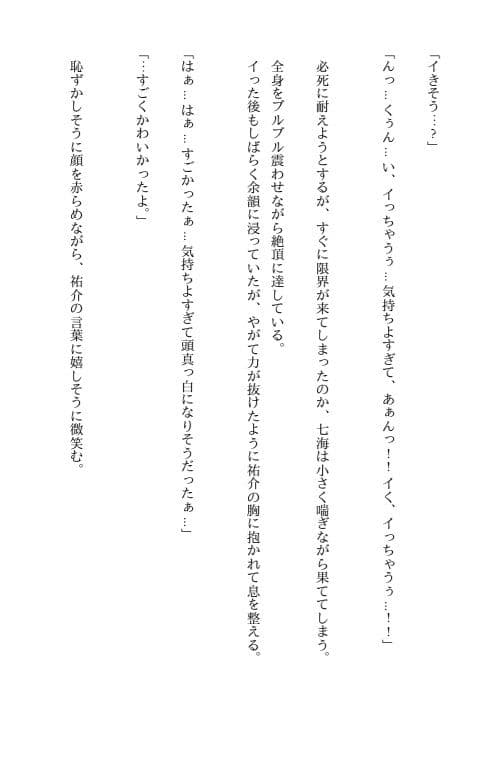 「イきそう…？」
「んっ…くぅん…い、イっちゃうぅ…気持ちよすぎて、あぁんっ！！イく、イっちゃうぅ…！！」
必死に耐えようとするが、すぐに限界が来てしまったのか、七海は小さく喘ぎながら果ててしまう。
全身をブルブル震わせながら絶頂に達している。
イった後もしばらく余韻に浸っていたが、やがて力が抜けたように祐介の胸に抱かれて息を整える。
「はぁ…はぁ…すごかったぁ…気持ちよすぎて頭真っ白になりそうだったぁ…」
「…すごくかわいかったよ。」
恥ずかしそうに顔を赤らめながら、祐介の言葉に嬉しそうに微笑む。